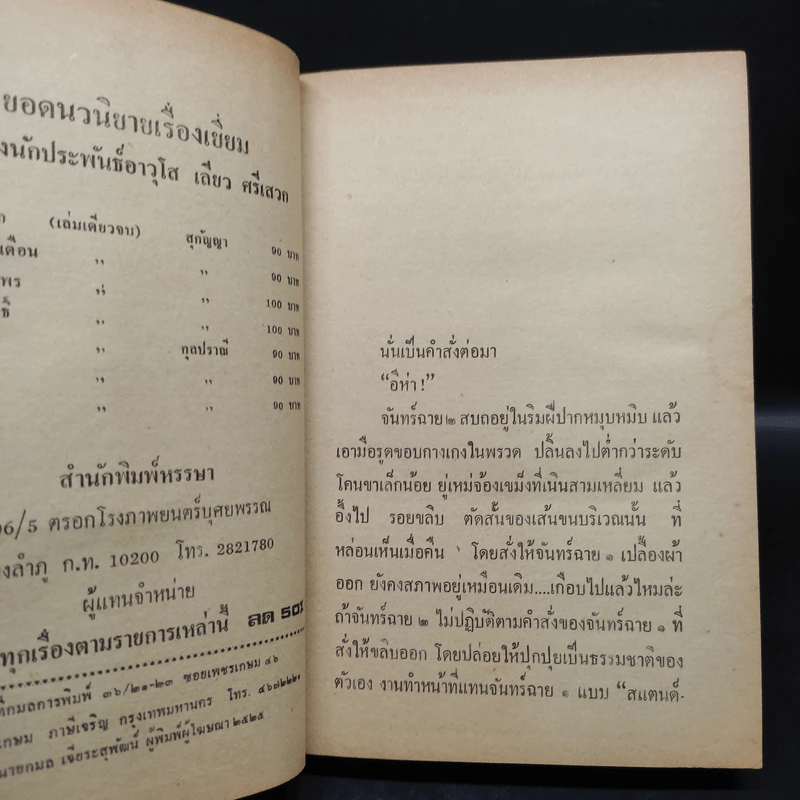 ยอดนวนิยายเรื่องเยี่ยม
งนักประพันธ์อาวุโส เลียว ศรีเสวก
ก (เล่มเดียวจบ) สุกัญญา ๑๐ บาท
เดือน ,, ,, ๑๐ บาท
พร ,, ,, 100 บาท
ธิ์ ,, ,, 100 บาท
,, กุลปราณี ๑๐ บาท
,, ,, ๑๐ บาท
,, ,, ๑๐ บาท
สำนักพิมพ์หรรษา
06/5 ตรอกโรงภาพยนตร์บุศยพรรณ
งลำภู ก.ท. 10200 โทร. 2821780
ผู้แทนจำหน่าย
ทุกเรื่องตามรายการเหล่านี้ ลด 50%
ที่กมลการพิมพ์ ๓๖/๒๑-๒๓ ซอยเพชรเกษม ๔๖
เกษม ภาษีเจริญ กรุงเทพมหานคร โทร. ๔๖๗๒๒๒
นายกมล เจียระสุพัฒน์ ผู้พิมพ์ผู้โฆษณา ๒๕๒๕
นั่นเป็นคำสั่งต่อมา
“อีห่า !”
จันทร์ฉาย ๒ สบถอยู่ในริมฝีปากหมุบหมิบ แล้ว
เอามือรูดขอบกางเกงในพรวด ปลิ้นลงไปต่ำกว่าระดับ
โคนขาเล็กน้อย ยู่เหม่จ้องเขม็งที่เนินสามเหลี่ยม แล้ว
อึ้งไป รอยขลิบ ตัดสั้นของเส้นขนบริเวณนั้น ที่
หล่อนเห็นเมื่อคืน โดยสั่งให้จันทร์ฉาย ๑ เปลื้องผ้า
ออก ยังคงสภาพอยู่เหมือนเดิม....เกือบไปแล้วไหมล่ะ
ถ้าจันทร์ฉาย ๒ ไม่ปฏิบัติตามคำสั่งของจันทร์ฉาย ๑ ที่
สั่งให้ขลิบออก โดยปล่อยให้ปุกปุยเป็นธรรมชาติของ
ตัวเอง งานทำหน้าที่แทนจันทร์ฉาย ๑ แบบ “สแตนด์-